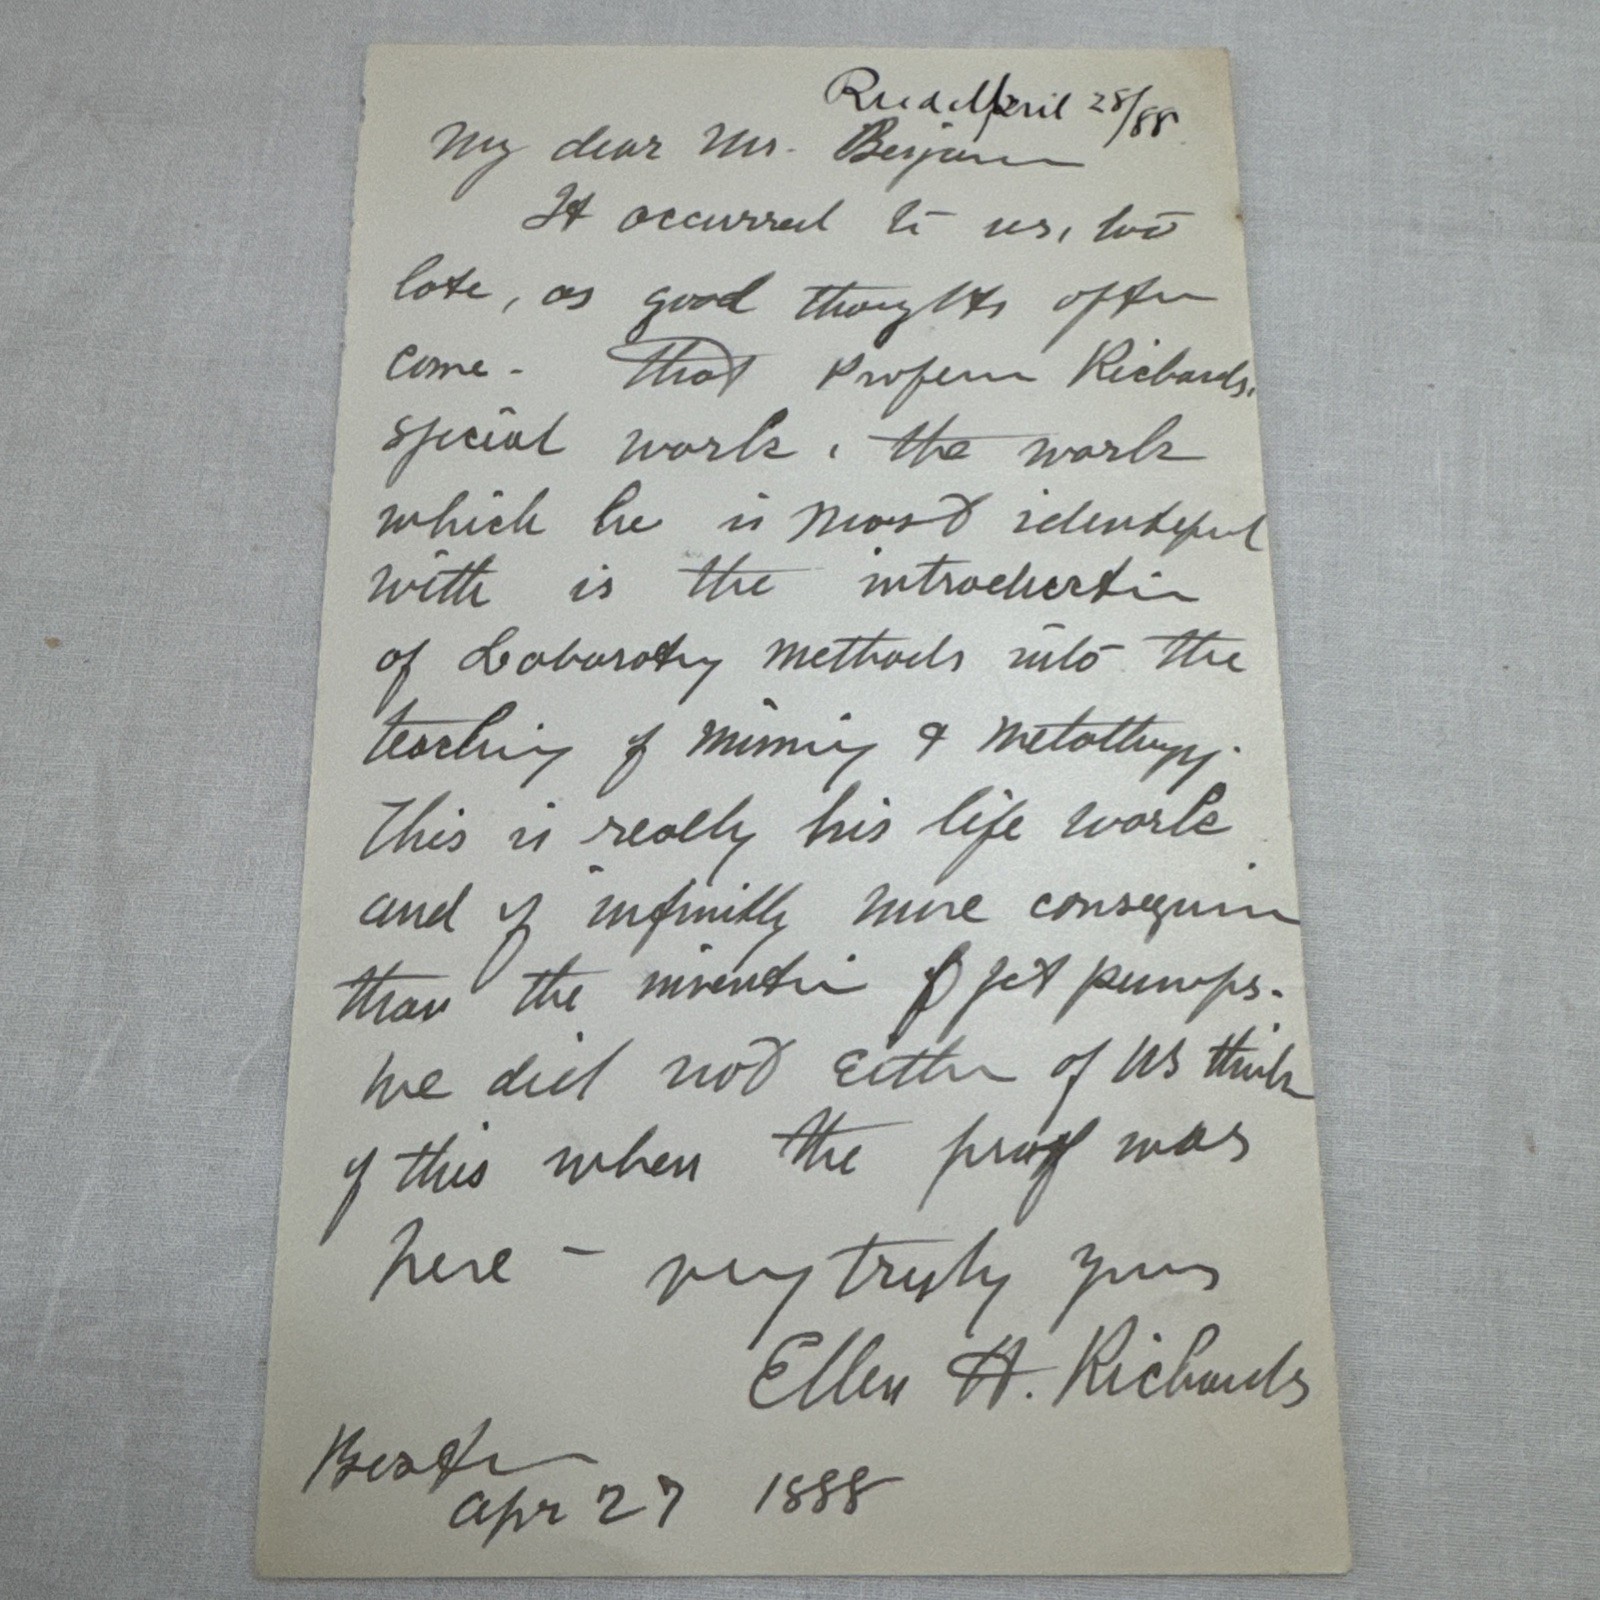 Rec'd April 28/88
My dear Mr. Benjamin
It occurred to us, too
late, as good thoughts often
come - that Professor Richards,
special work, the work
which he is most identified
with is the introduction
of Laboratory methods into the
teaching of mining & metallurgy.
This is really his life work
and of infinitly more consequence
than the invention of jet pumps.
We did not either of us think
of this when the proof was
here - very truly yours
Ellen H. Richards
Boston
Apr 27 1888